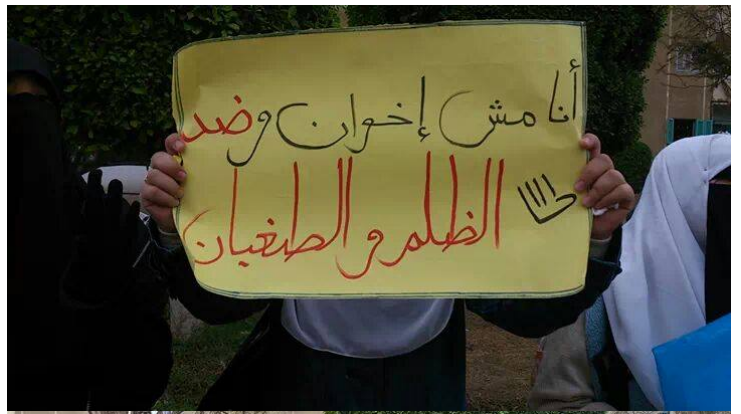 أنا مش إخوان و ضد
الظلم و الطغيان